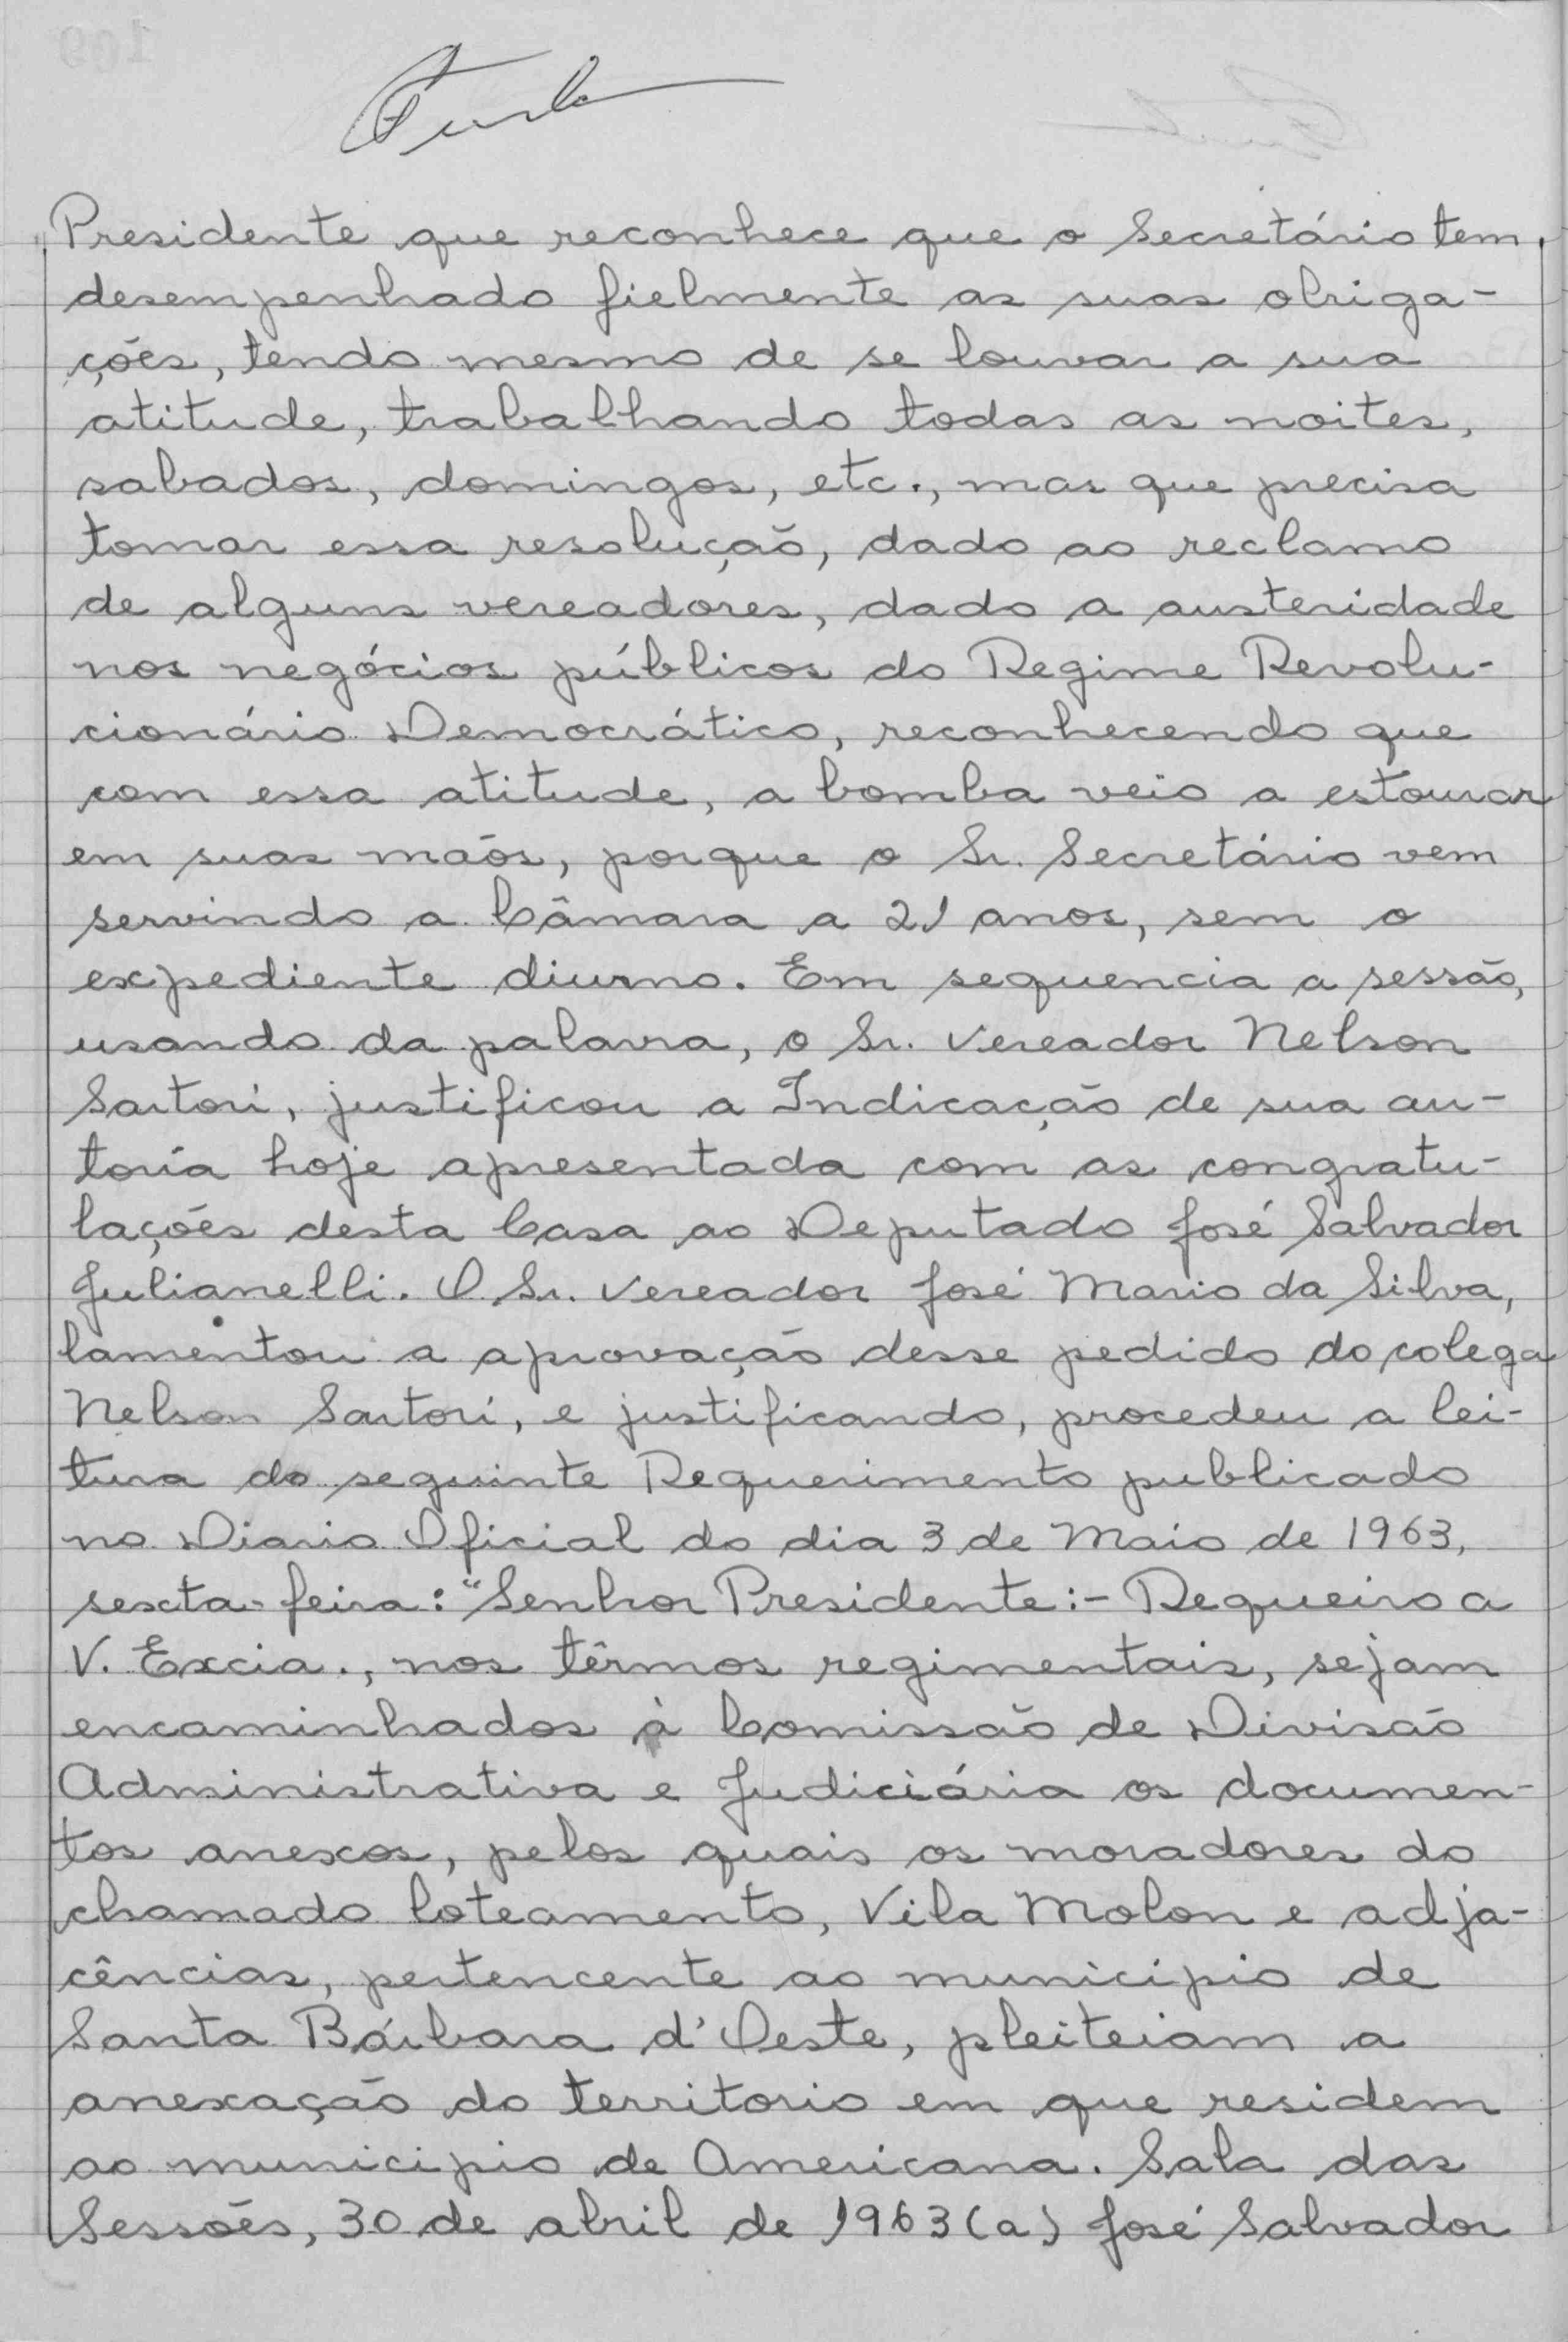 Presidente que reconhece que o Secretário tem
desempenhado fielmente as suas obriga-
ções, tendo mesmo de se louvar a sua
atitude, trabalhando todas as noites,
sabados, domingos, etc., mas que precisa
tomar essa resolução, dado ao reclamo
de alguns vereadores, dado a austeridade
nos negócios públicos do Regime Revolu-
cionário Democrático, reconhecendo que
com essa atitude, a bomba veio a estourar
em suas mãos, porque o Sr. Secretário vem
servindo a Câmara a 21 anos, sem o
expediente diurno. Em sequencia a sessão,
usando da palavra, o Sr. Vereador Nelson
Sartori, justificou a Indicação de sua au-
toria hoje apresentada com as congratu-
lações desta Casa ao Deputado José Salvador
Julianelli. O Sr. Vereador José Mario da Silva,
lamentou a aprovação desse pedido do colega
Nelson Sartori, e justificando, procedeu a lei-
tura do seguinte Requerimento publicado
no Diario Oficial do dia 3 de Maio de 1963,
sexta-feira: "Senhor Presidente:- Requeiro a
V. Excia., nos têrmos regimentais, sejam
encaminhados à Comissão de Divisão
Administrativa e Judiciária os documen-
tos anexos, pelos quais os moradores do
chamado loteamento, Vila Molon e adja-
cências, pertencente ao municipio de
Santa Bárbara d'Oeste, pleiteiam a
anexação do territorio em que residem
ao municipio de Americana. Sala das
Sessões, 30 de abril de 1963 (a) José Salvador